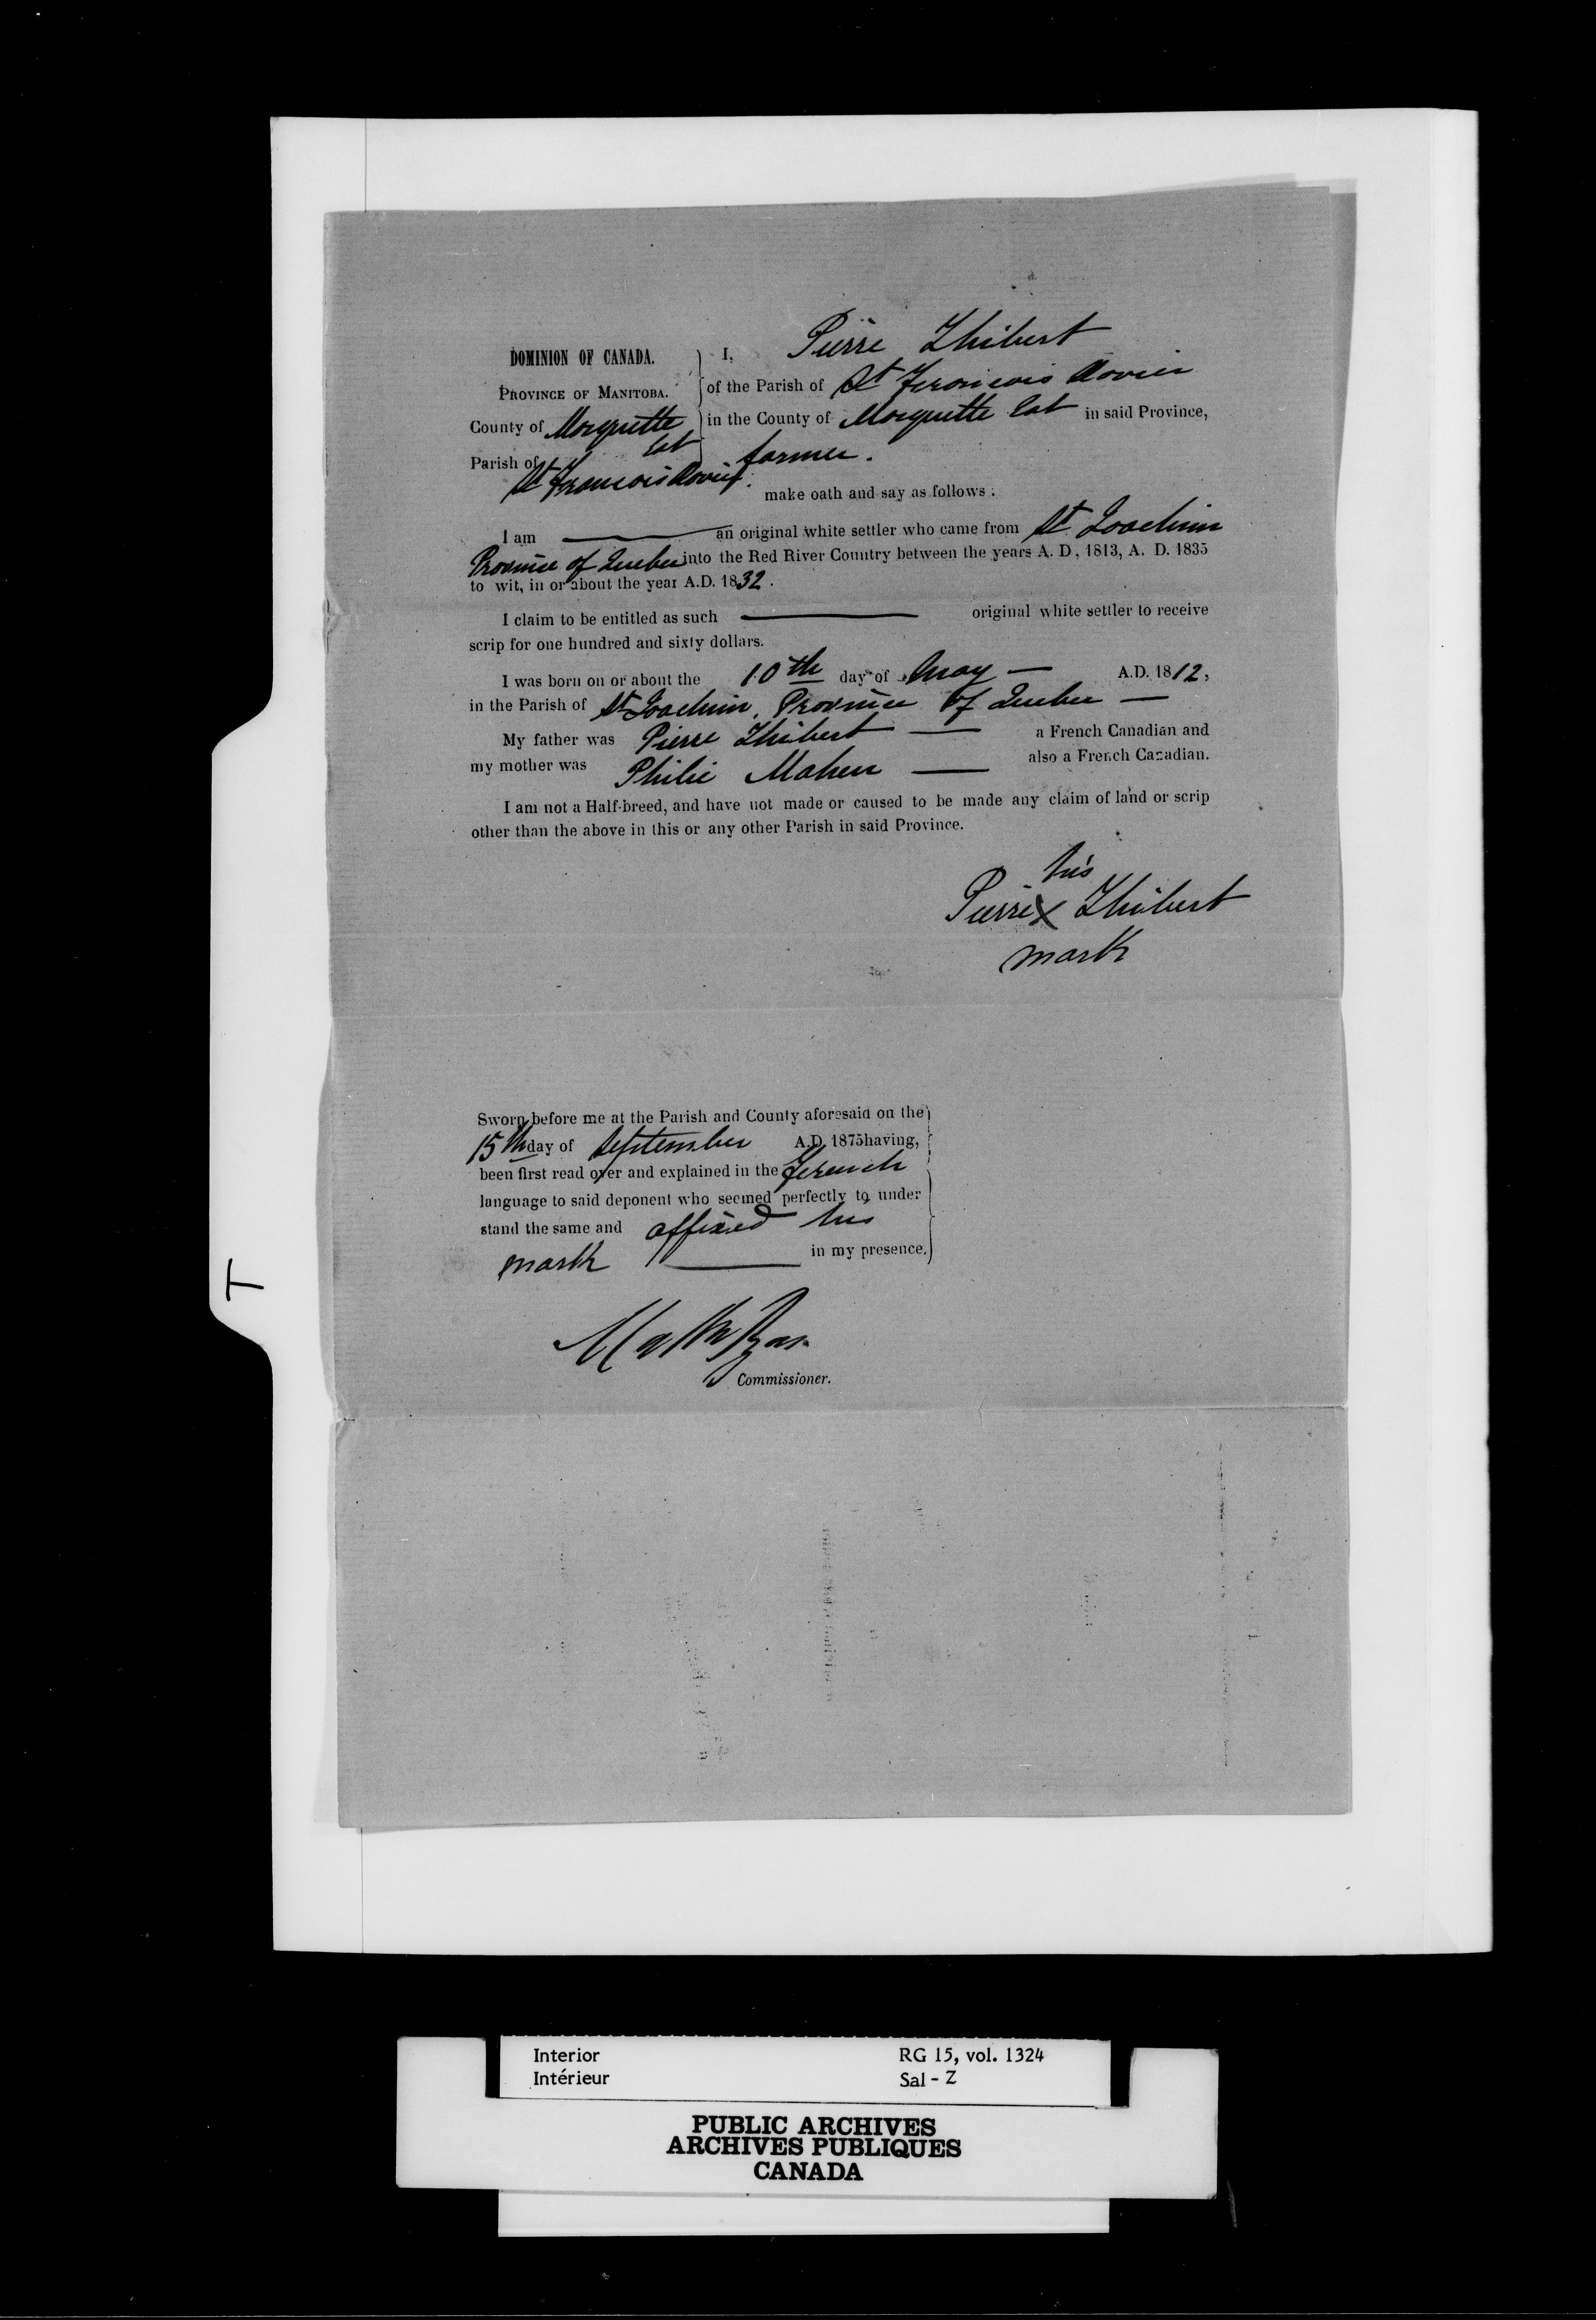 DOMINION OF CANADA.
PROVINCE OF MANITOBA.
County of Marquette
Est
Parish of
St Francois Xavier.
I, Pierre Thibert
of the Parish of St Francois Xavier
in the County of Marquette Est in said Province,
farmer.
make oath and say as follows :
I am an original white settler who came from St Joachim
Province of Quebec into the Red River Country between the years A. D, 1813, A. D. 1835
to wit, in or about the year A.D. 1832.
I claim to be entitled as such original white settler to receive
scrip for one hundred and sixty dollars.
I was born on or about the 10th day of May — A.D. 1812,
in the Parish of St Joachim, Province of Quebec —
My father was Pierre Thibert — a French Canadian and
my mother was Philie Maheu — also a French Canadian.
I am not a Half-breed, and have not made or caused to be made any claim of land or scrip
other than the above in this or any other Parish in said Province.
his
Pierre X Thibert
mark
Sworn before me at the Parish and County aforesaid on the
15th day of September A.D. 1875 having,
been first read over and explained in the French
language to said deponent who seemed perfectly to under
stand the same and affixed his
mark in my presence.
Commissioner.
T
Interior RG 15, vol. 1324
Intérieur Sal - Z
PUBLIC ARCHIVES
ARCHIVES PUBLIQUES
CANADA